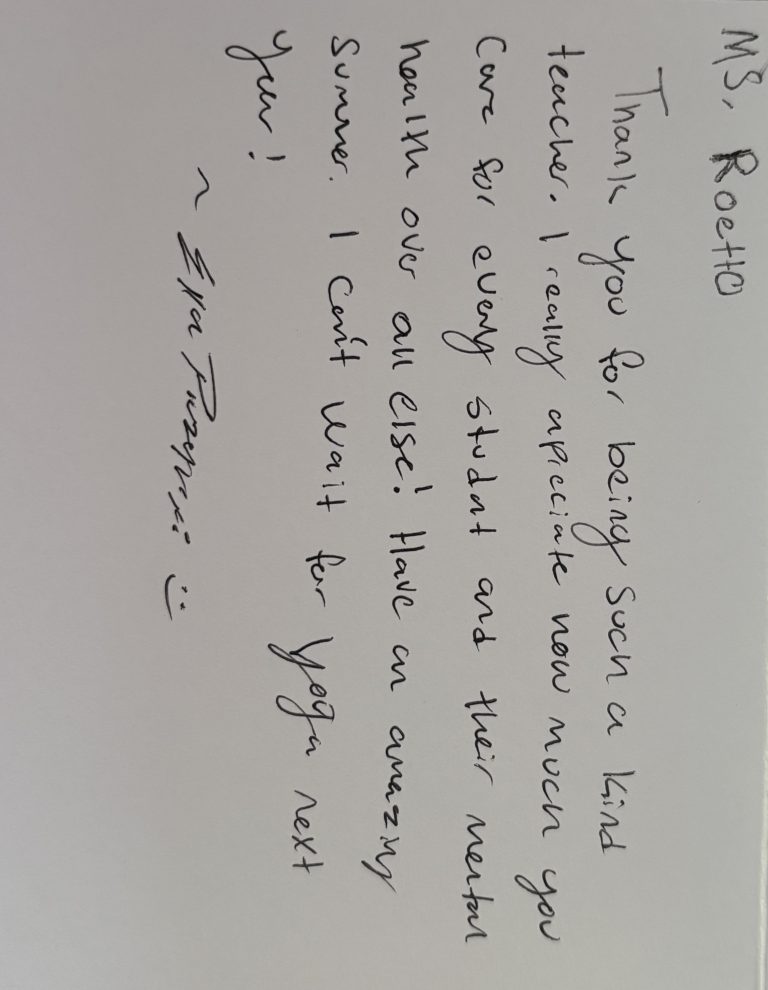 Ms. Roetto
Thank you for being such a kind
teacher. I really apicciate how much you
care for every studnt and their mental
health over all else! Have an amazing
summer. I can't wait for yoga next
year!
~ :)